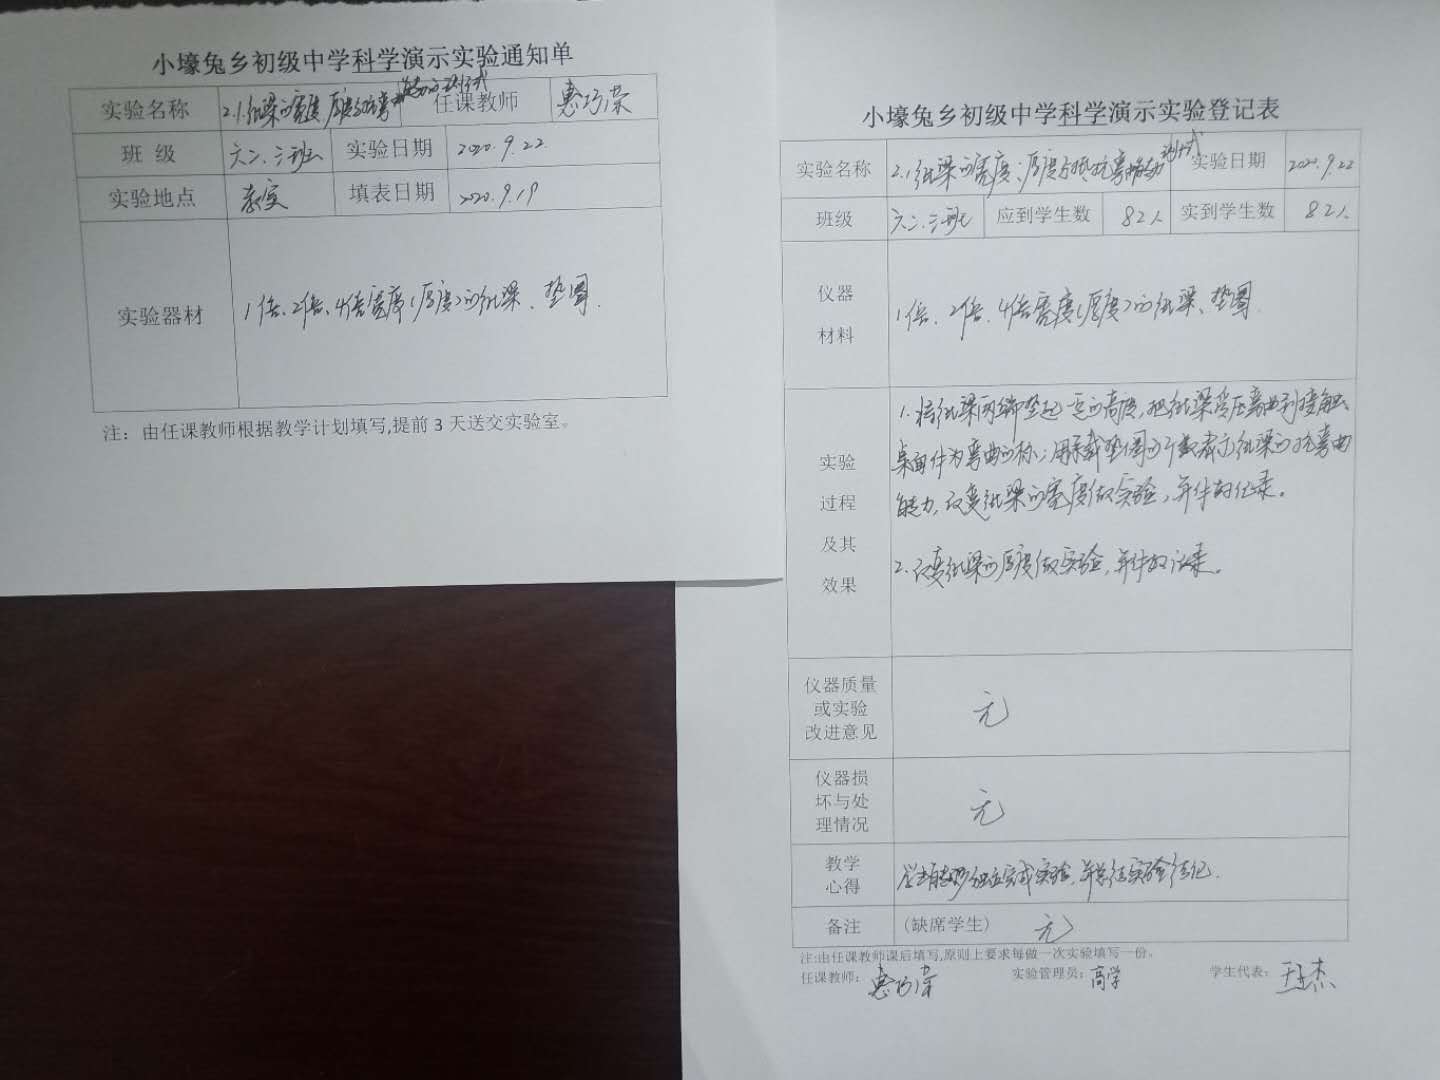 小壕兔乡初级中学科学演示实验通知单
实验名称 2.1纸梁的宽度厚度与抗弯曲能力的测试 任课教师 惠巧荣
班 级 六二、三班 实验日期 2020.9.22
实验地点 教室 填表日期 2020.9.19
实验器材 1倍、2倍、4倍宽度(厚度)的纸梁、垫圈.
注：由任课教师根据教学计划填写,提前3天送交实验室。
小壕兔乡初级中学科学演示实验登记表
实验名称 2.1纸梁的宽度、厚度与抗弯曲能力 测试 实验日期 2020.9.22
班级 六二、三班 应到学生数 82人 实到学生数 82人
仪器
材料
1倍、2倍、4倍宽度(厚度)的纸梁、垫圈.
实验
过程
及其
效果
1.将纸梁两端垫起一定的高度,把纸梁受压弯曲到接触
桌面作为弯曲的标;用承载垫圈的个数表示纸梁的抗弯曲
能力,改变纸梁的宽度做实验,并作好记录。
2.改变纸梁的厚度做实验,并作好记录。
仪器质量
或实验
改进意见
无
仪器损
坏与处
理情况
无
教学
心得
学生能够独立完成实验,并总结实验结论.
备注 (缺席学生) 无
注:由任课教师课后填写,原则上要求每做一次实验填写一份。
任课教师：惠巧荣 实验管理员：高学 学生代表：